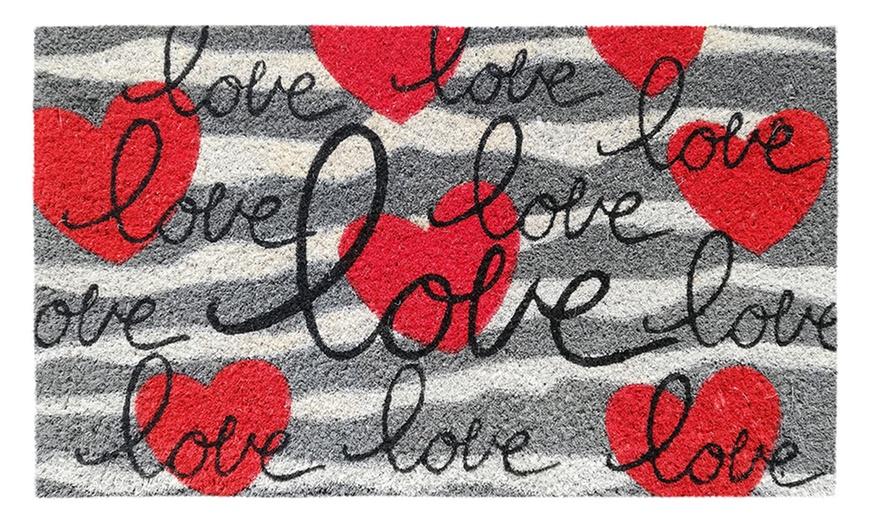 love love
love
love love
love
ove love
love love love